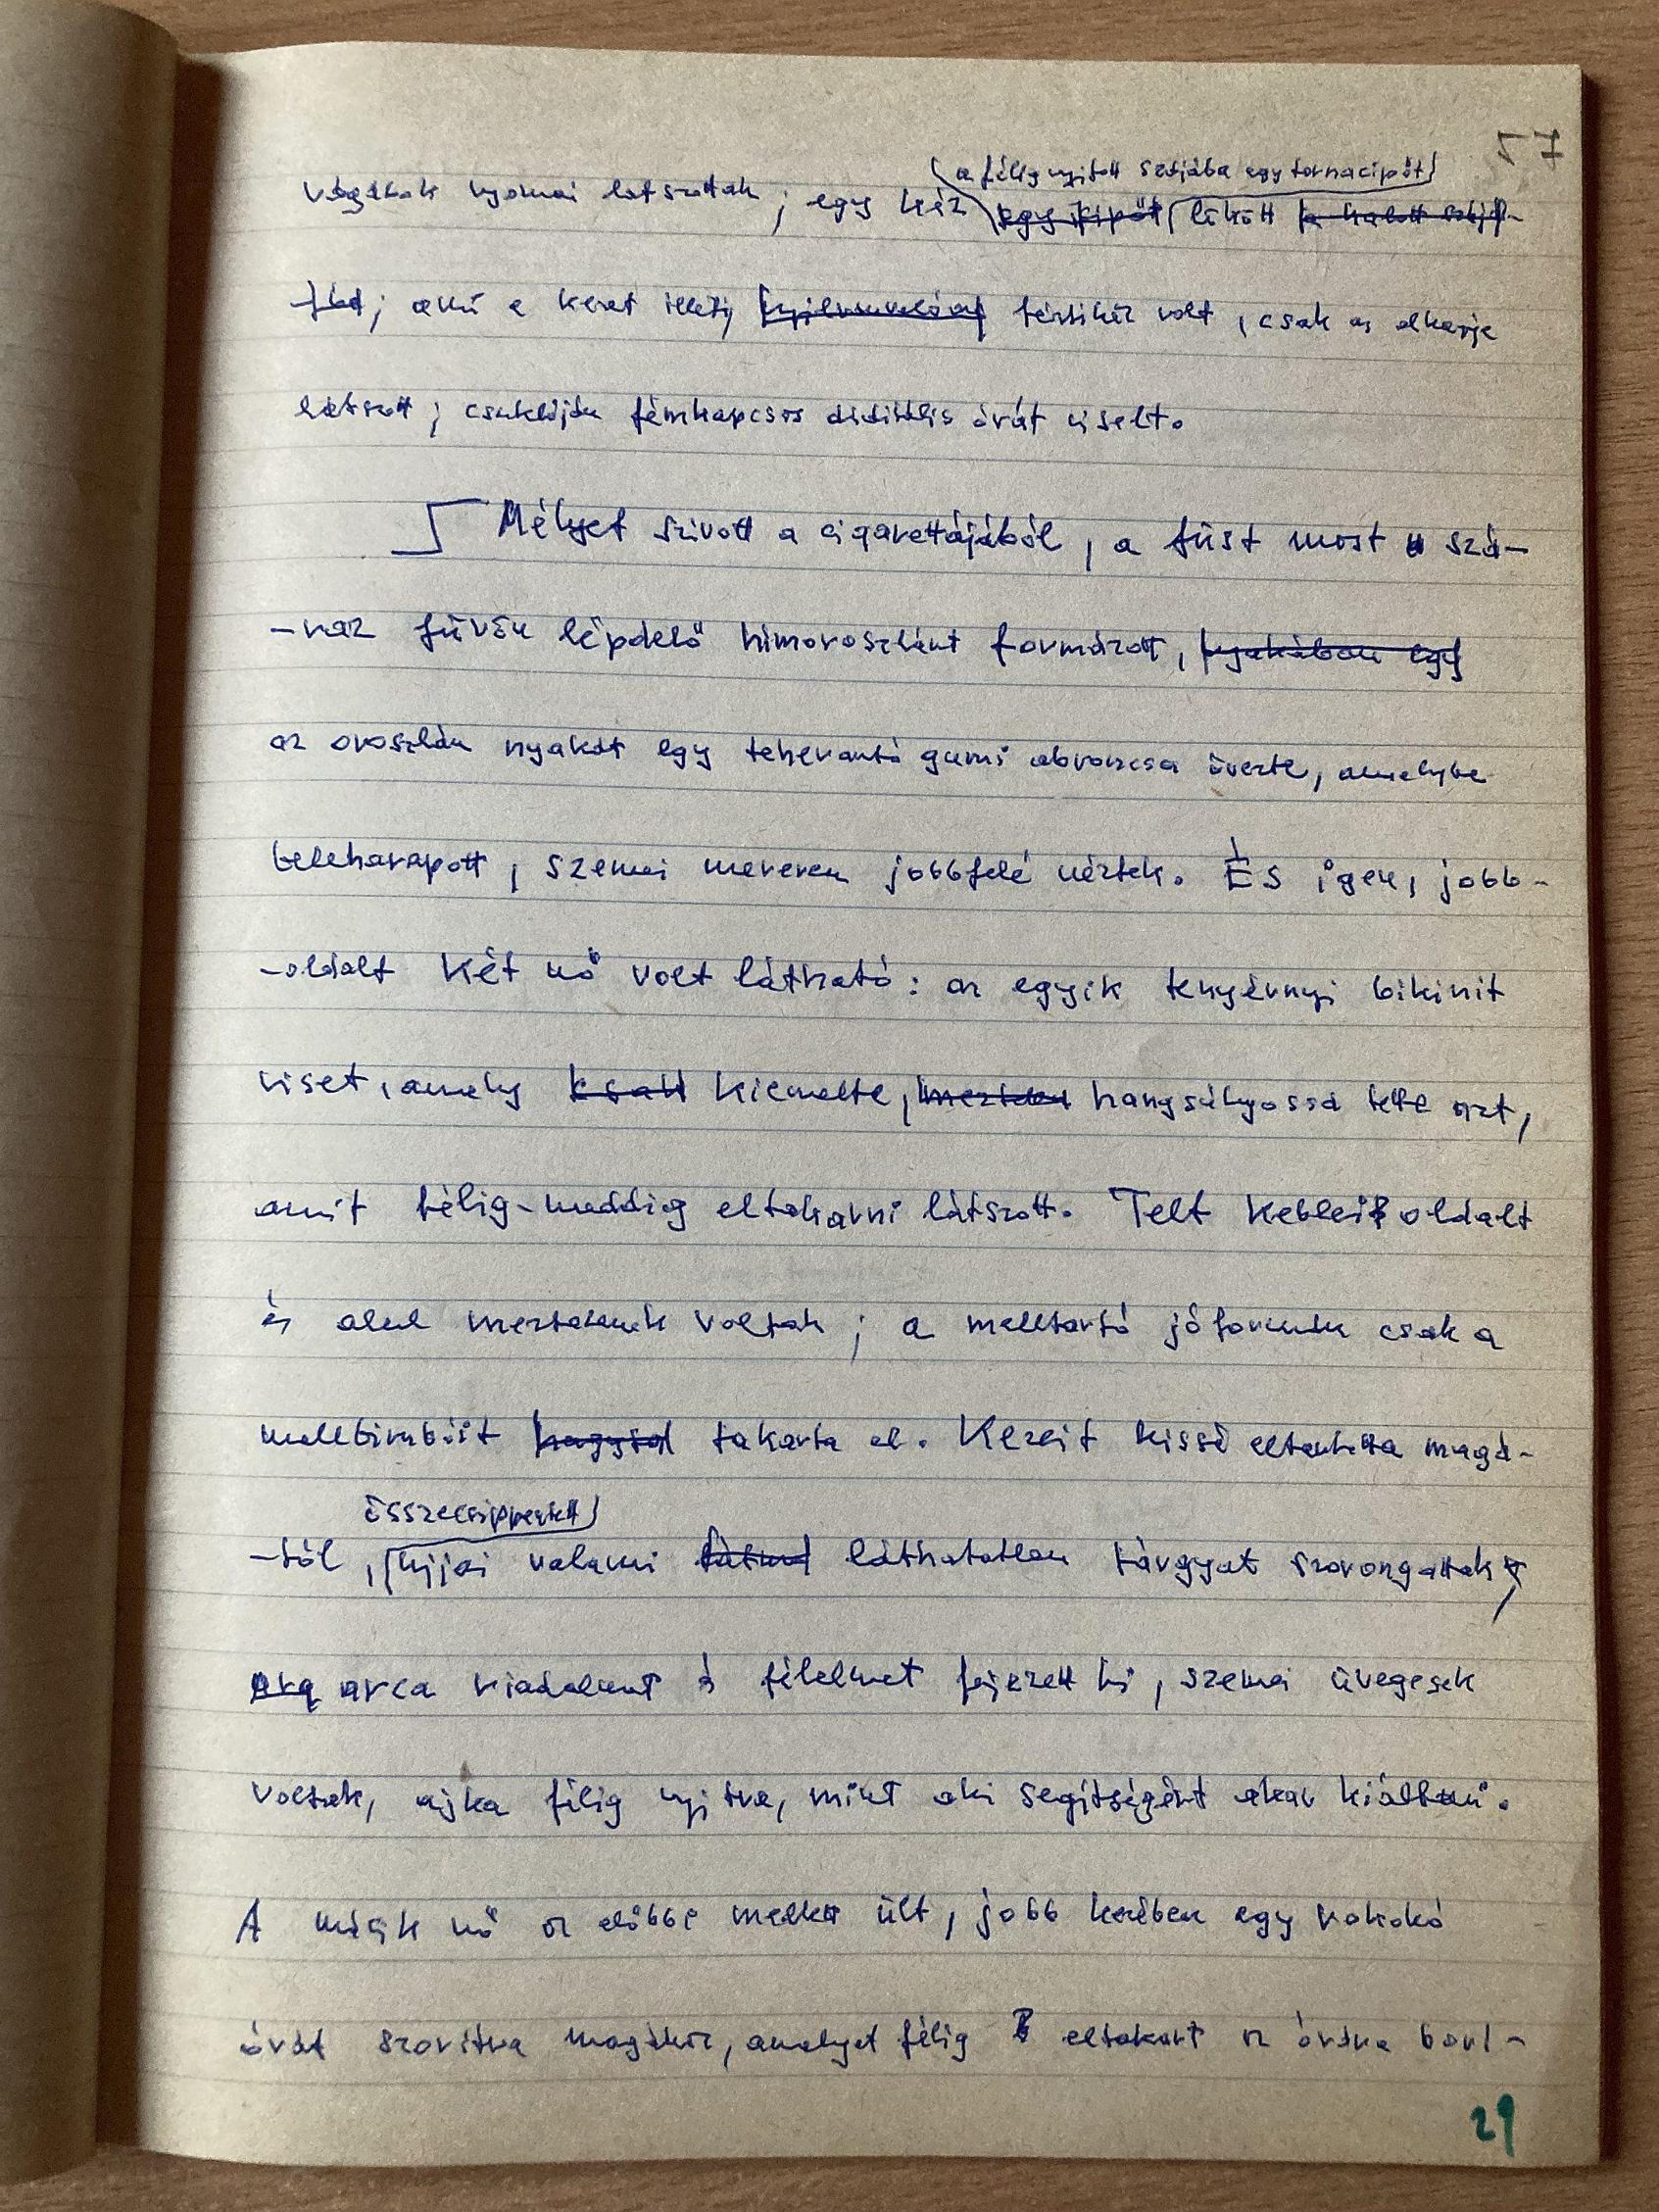 57
a félig nyitott szájába egy tornacipőt
vágások nyomai látszottak ; egy kéz egy cipőt lökött a halott szájá-
-ba ; ami a kezet illeti, nyilvánvalóan férfikéz volt , csak az alkarja
látszott ; csuklóján fémkapcsos digitális órát viselt.
Mélyet szivott a cigarettájából , a füst most szá-
-raz füvön lépdelő hímoroszlánt formázott , nyakában egy
az oroszlán nyakát egy teherautó gumi abroncsa övezte , amelybe
beleharapott , szemei mereven jobbfelé néztek. És igen, jobb-
-oldalt két nő volt látható : az egyik tenyérnyi bikinit
viset , amely csak kiemelte , meztelen hangsúlyossá tette azt ,
amit félig-meddig eltakarni látszott. Telt keblei oldalt
és alul meztelenek voltak ; a melltartó jóformán csak a
mellbimbóit takarta el . Kezeit kissé eltartotta magá-
összecsippentett
-tól , ujjai valami láthatatlan tárgyat szorongattak ,
arca viadalmat és félelmet fejezett ki , szemei üvegesek
voltak, ajka félig nyitva, mint aki segítségért akar kiáltani .
A másik nő az előbbi mellett ült , jobb kezében egy vekker
órát szorítva magához , amelyet félig eltakart az órára borí-
29